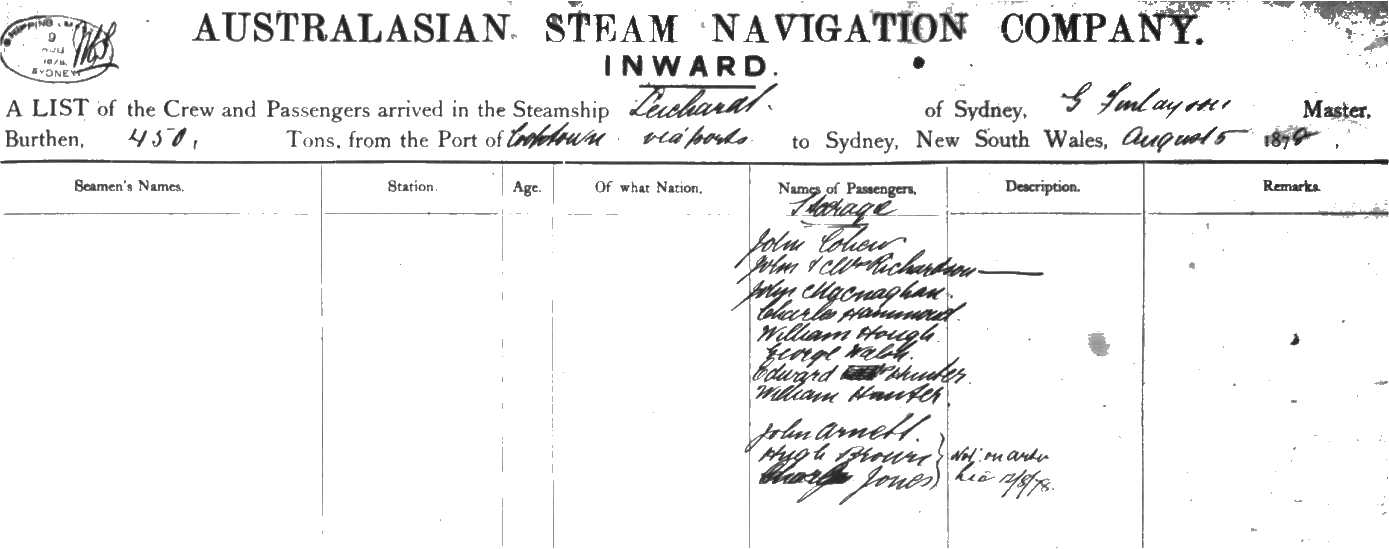 SHIPPING
9
187
SYDNEY
AUSTRALASIAN STEAM NAVIGATION COMPANY.
INWARD.
A LIST of the Crew and Passengers arrived in the Steamship Leichardt. of Sydney, G Finlayson Master,
Burthen, 450, Tons, from the Port of Cooktown via ports to Sydney, New South Wales, August 5 1878.
Seamen's Names. Station. Age. Of what Nation, Names of Passengers, Description. Remarks.
Steerage
John Cohen
John & Mrs Richardson
John Macnaghan.
Charles Hammond.
William Hough.
George Walsh.
Edward Hunter.
William Hunter.
John Arnett.
Hugh Brown
Charles Jones
Not on
12/8/78.